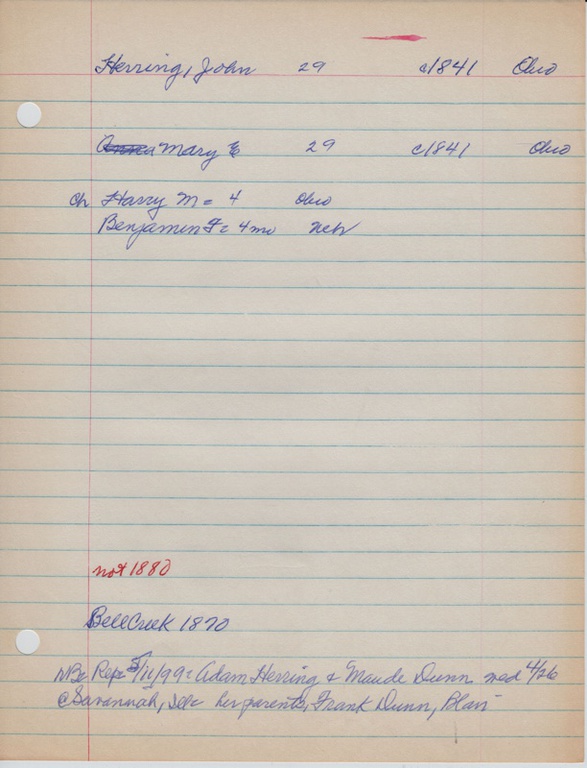 Herring, John 29 c1841 Ohio
Mary E 29 c1841 Ohio
Ch Harry M = 4 Ohio
Benjamin F = 4 mo Nebr
not 1880
Bell Creek 1870
Rep 5/11/99 = Adam Herring & Maude Dunn med 4/26
@ Savannah, her parents, Frank Dunn, Blair